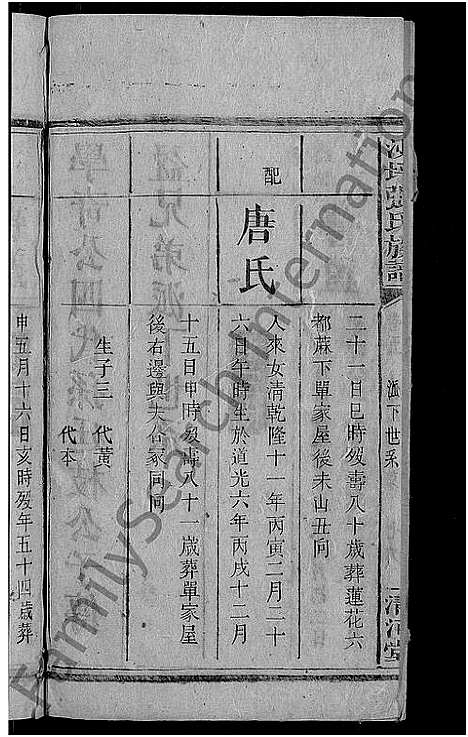 張氏族譜
派下世系
清河堂
二十一日巳時歿壽八十歲葬蓮花六
都蔴下單家屋後未山丑向
配
唐氏
人來女清乾隆十一年丙寅二月二十
六日午時生於道光六年丙戌十二月
十五日申時歿壽八十一歲葬單家屋
後右邊與夫公冢同向
生子三 代黃
代本
申五月十六日亥時歿年五十四歲葬
FamilySearch International